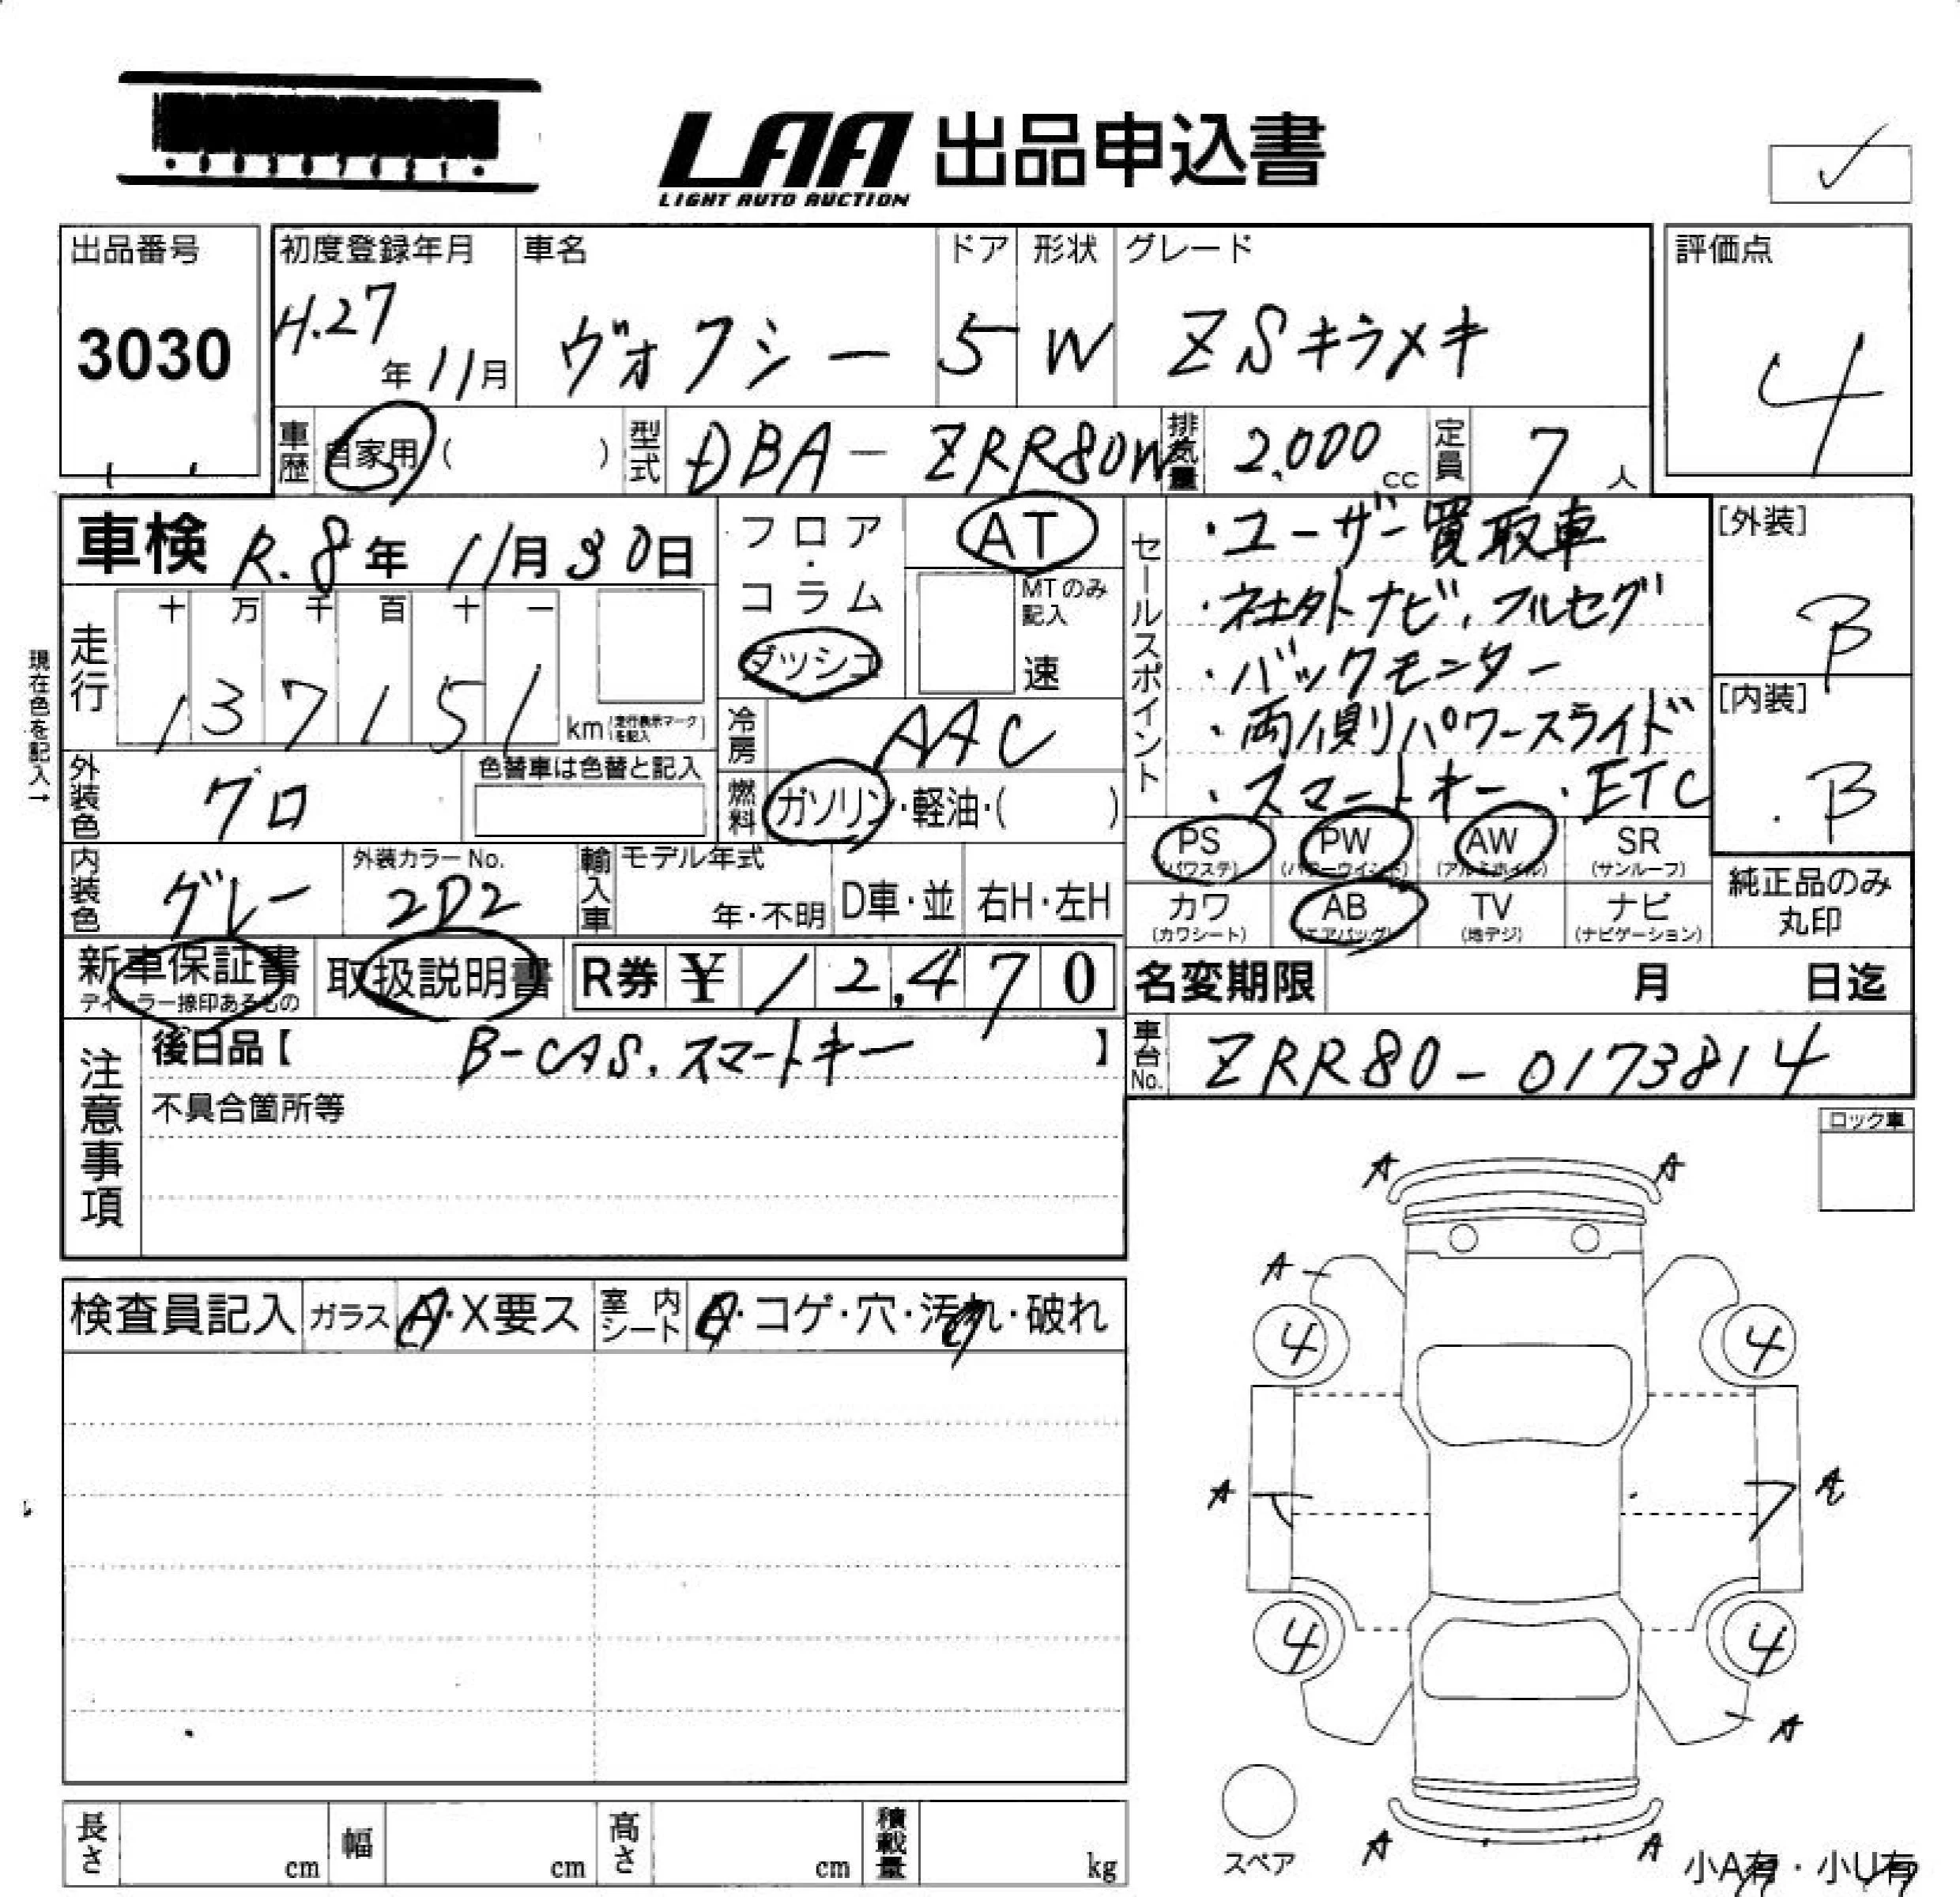 LAA 出品申込書
LIGHT AUTO AUCTION
出品番号
3030
初度登録年月
H.27年11月
車名
ヴォクシー
ドア
5
形状
W
グレード
ZSキラメキ
評価点
4
車歴 自家用( )
型式 DBA-ZRR80W
排気量 2,000cc
定員 7人
車検 R.8年11月30日
フロア・コラム
ダッシュ
AT
MTのみ記入
速
現在色を記入→
走行
十 万 千 百 十 一
1 3 7 1 5 1 km(走行表示マークを記入)
冷房 AAC
燃料 ガソリン・軽油・( )
外装色 クロ
色替車は色替と記入
内装色 グレー
外装カラーNo.
2D2
輸入車
モデル年式
年・不明
D車・並
右H・左H
セールスポイント
・ユーザー買取車
・社外ナビ、フルセグ
・バックモニター
・両側パワースライド
・スマートキー ・ETC
[外装]
B
[内装]
B
PS (パワステ)
PW (パワーウインド)
AW (アルミホイル)
SR (サンルーフ)
カワ (カワシート)
AB (エアバッグ)
TV (地デジ)
ナビ (ナビゲーション)
純正品のみ丸印
新車保証書
ディーラー捺印あるもの
取扱説明書
R券 ¥12,470
名変期限 月 日迄
車台No. ZRR80-0173814
注意事項
後日品【 B-CAS、スマートキー 】
不具合箇所等
ロック車
検査員記入
ガラス A・X要ス
室内シート A・コゲ・穴・汚れ・破れ
A A
A
4 4
A A
4 4
A
A A
スペア
小A有・小U有
長さ cm
幅 cm
高さ cm
積載量 kg